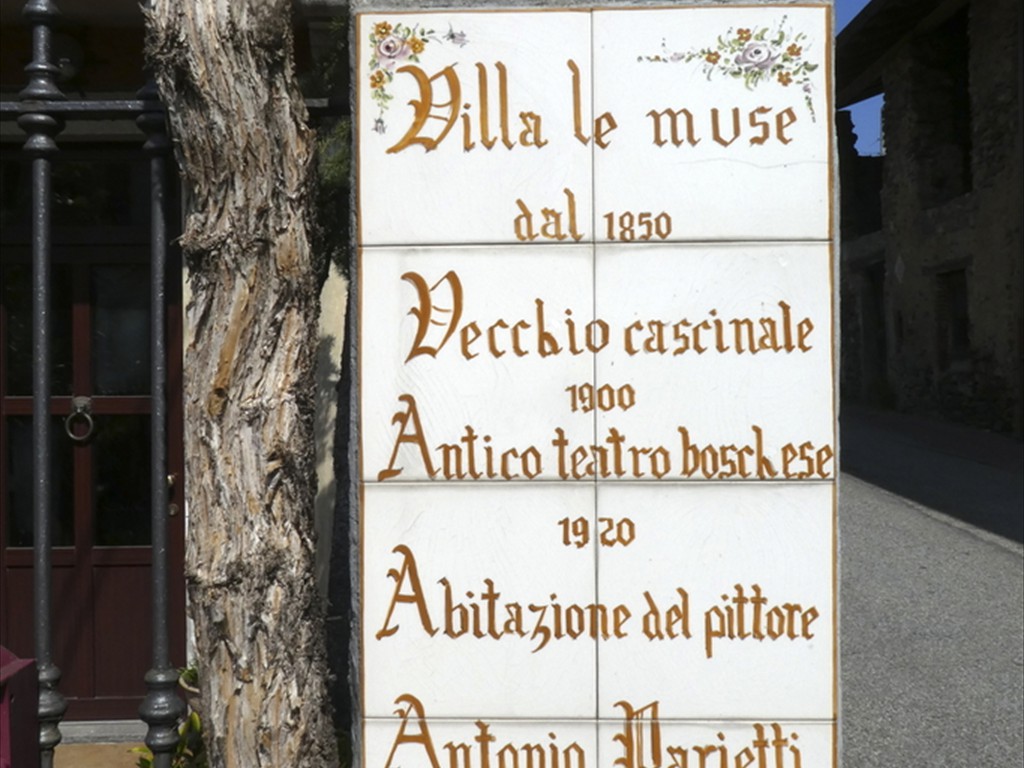 Villa le muse
dal 1850
Vecchio cascinale
1900
Antico teatro boschese
1920
Abitazione del pittore
Antonio